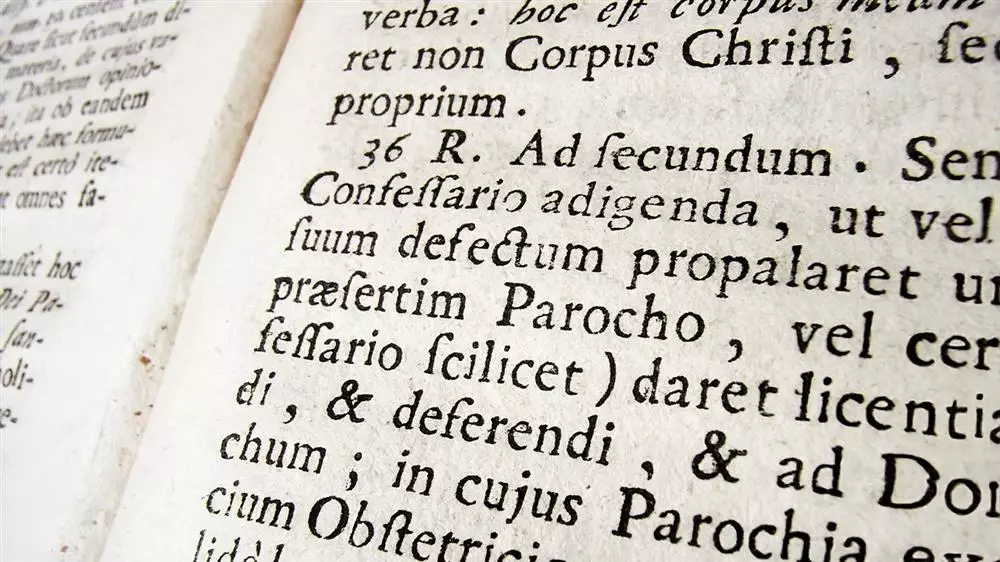 Quare sicut secundùm di-
materia, de cujus va-
Doctorum opinio-
, ita ob eandem
debet hæc formu-
est certò ite-
omnes fa-
hoc
Dei Pa-
san-
oli-
e-
verba : hoc est corpus meum
ret non Corpus Christi , sed
proprium .
36 R. Ad ſecundum . Sen
Confeſſario adigenda , ut vel
ſuum defectum propalaret u
præſertim Parocho , vel cer
feſſario ſcilicet ) daret licentia
di , & deferendi , & ad Do
chum ; in cujus Parochia ex
cium Obſtetrici